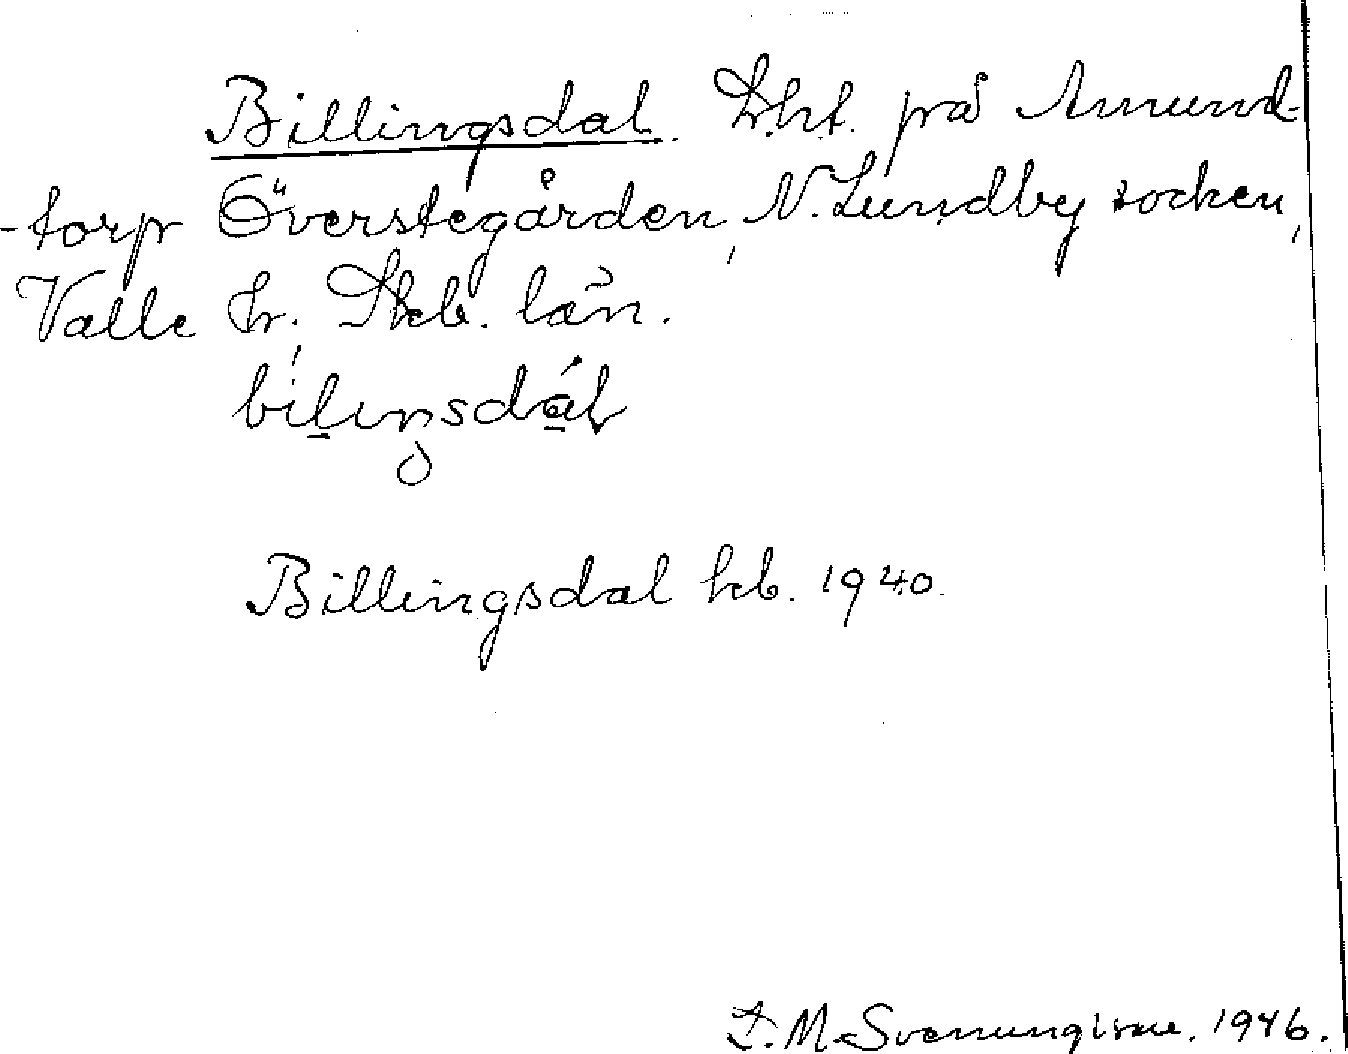 Billingsdal. Lht. på Amund-
-torp Överstegården, N. Lundby socken,
Valle hr. Skb. län.
bíliŋsdál
Billingsdal kb. 1940.
M. Svenungsson. 1946.